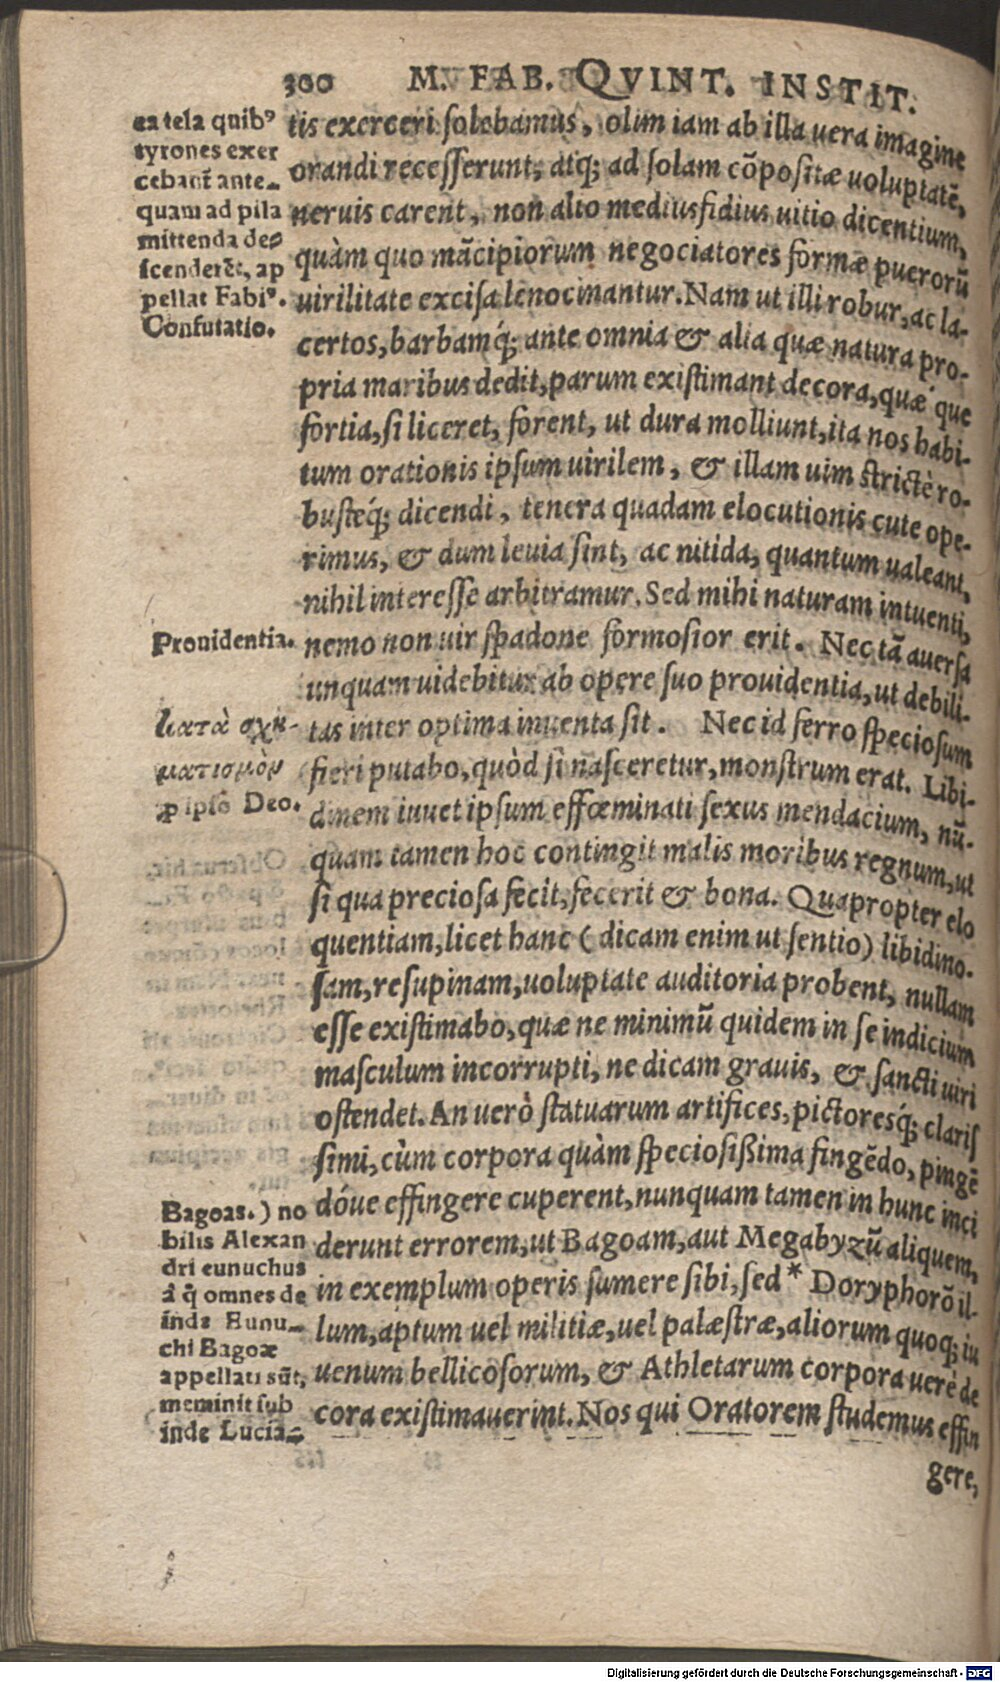 300 M. FAB. QVINT. INSTIT.
tis exerceri solebamus, olim iam ab illa uera imagine
orandi recesserunt, atq; ad solam cõpositæ uoluptatẽ,
neruis carent, non alio mediusfidius uitio dicentium,
quàm quo mãcipiorum negociatores formæ puerorũ
uirilitate excisa lenocinantur. Nam ut illi robur, ac la-
certos, barbamq́; ante omnia & alia quæ natura pro-
pria maribus dedit, parum existimant decora, quæ que
fortia, si liceret, forent, ut dura molliunt, ita nos habi-
tum orationis ipsum uirilem, & illam uim strictè ro-
busteq́; dicendi, tenera quadam elocutionis cute ope-
rimus, & dum leuia sint, ac nitida, quantum ualeant,
nihil interesse arbitramur. Sed mihi naturam intuenti,
nemo non uir spadone formosior erit. Nec tã auersa
unquam uidebitur ab opere suo prouidentia, ut debili-
tas inter optima inuenta sit. Nec id ferro speciosum
fieri putabo, quòd si nasceretur, monstrum erat. Libi-
dinem iuuet ipsum effœminati sexus mendacium, nũ-
quam tamen hoc contingit malis moribus regnum, ut
si qua preciosa fecit, fecerit & bona. Quapropter elo
quentiam, licet hanc (dicam enim ut sentio) libidino-
sam, resupinam, uoluptate auditoria probent, nullam
esse existimabo, quæ ne minimũ quidem in se indicium
masculum incorrupti, ne dicam grauis, & sancti uiri
ostendet. An uerò statuarum artifices, pictoresq́; claris
simi, cùm corpora quàm speciosißima fingẽdo, pingẽ
dóue effingere cuperent, nunquam tamen in hunc inci
derunt errorem, ut Bagoam, aut Megabyzũ aliquem,
in exemplum operis sumere sibi, sed * Doryphorõ il-
lum, aptum uel militiæ, uel palæstræ, aliorum quoq; iu
uenum bellicosorum, & Athletarum corpora uerè de
cora existimauerint. Nos qui Oratorem studemus effin
gere,
ea tela quibꝰ
tyrones exer
cebant̃ ante-
quam ad pila
mittenda de-
scenderẽt, ap
pellat Fabiꝰ.
Confutatio.
Prouidentia.
κατὰ σχη-
ματισμὸν
ꝓ ipso Deo.
Bagoas.) no
bilis Alexan
dri eunuchus
à q̃ omnes de
inde Eunu-
chi Bagoæ
appellati sũt,
meminit sub
inde Lucia-